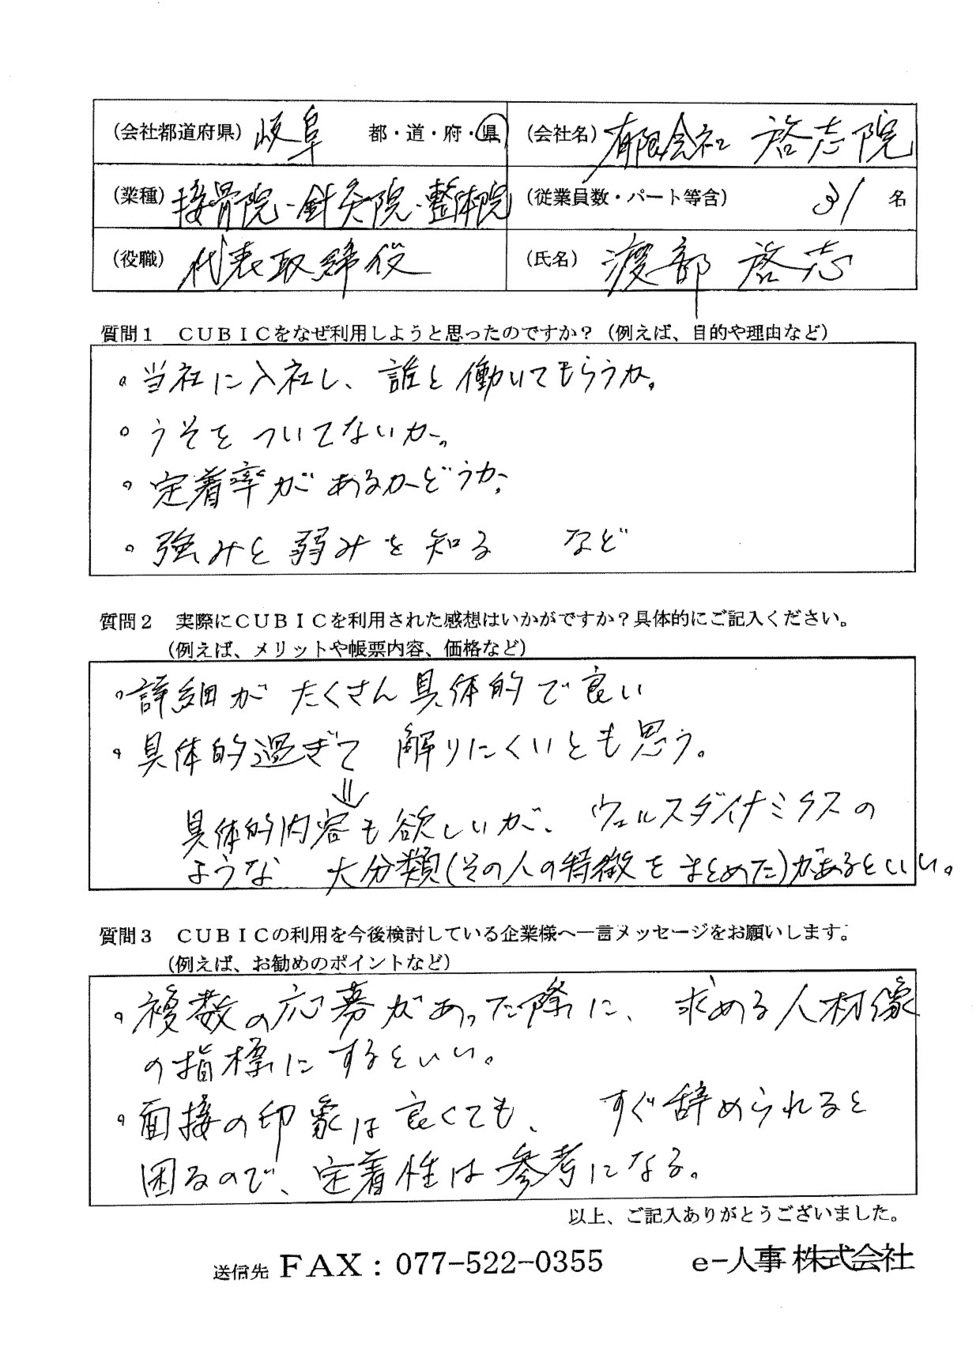 (会社都道府県) 岐阜 都・道・府・県 (会社名) 有限会社 啓志院
(業種) 接骨院・針灸院・整体院 (従業員数・パート等含) 31 名
(役職) 代表取締役 (氏名) 渡部 啓志
質問1 CUBICをなぜ利用しようと思ったのですか?(例えば、目的や理由など)
。当社に入社し、誰と働いてもらうか。
。うそをついてないか。
。定着率があるかどうか。
。強みと弱みを知る など
質問2 実際にCUBICを利用された感想はいかがですか?具体的にご記入ください。
(例えば、メリットや帳票内容、価格など)
。詳細がたくさん具体的で良い
。具体的過ぎて 解りにくいとも思う。
⇓
具体的内容も欲しいが、ウェルスダイナミクスの
ような 大分類(その人の特徴をまとめた)があるといい。
質問3 CUBICの利用を今後検討している企業様へ一言メッセージをお願いします。
(例えば、お勧めのポイントなど)
。複数の応募があった際に、求める人材像
の指標にするといい。
。面接の印象は良くても、すぐ辞められると
困るので、定着性は参考になる。
以上、ご記入ありがとうございました。
送信先 FAX:077-522-0355 e-人事株式会社